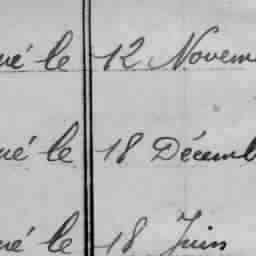 né le 12 Novem
né le 18 Décemb
né le 18 Juin